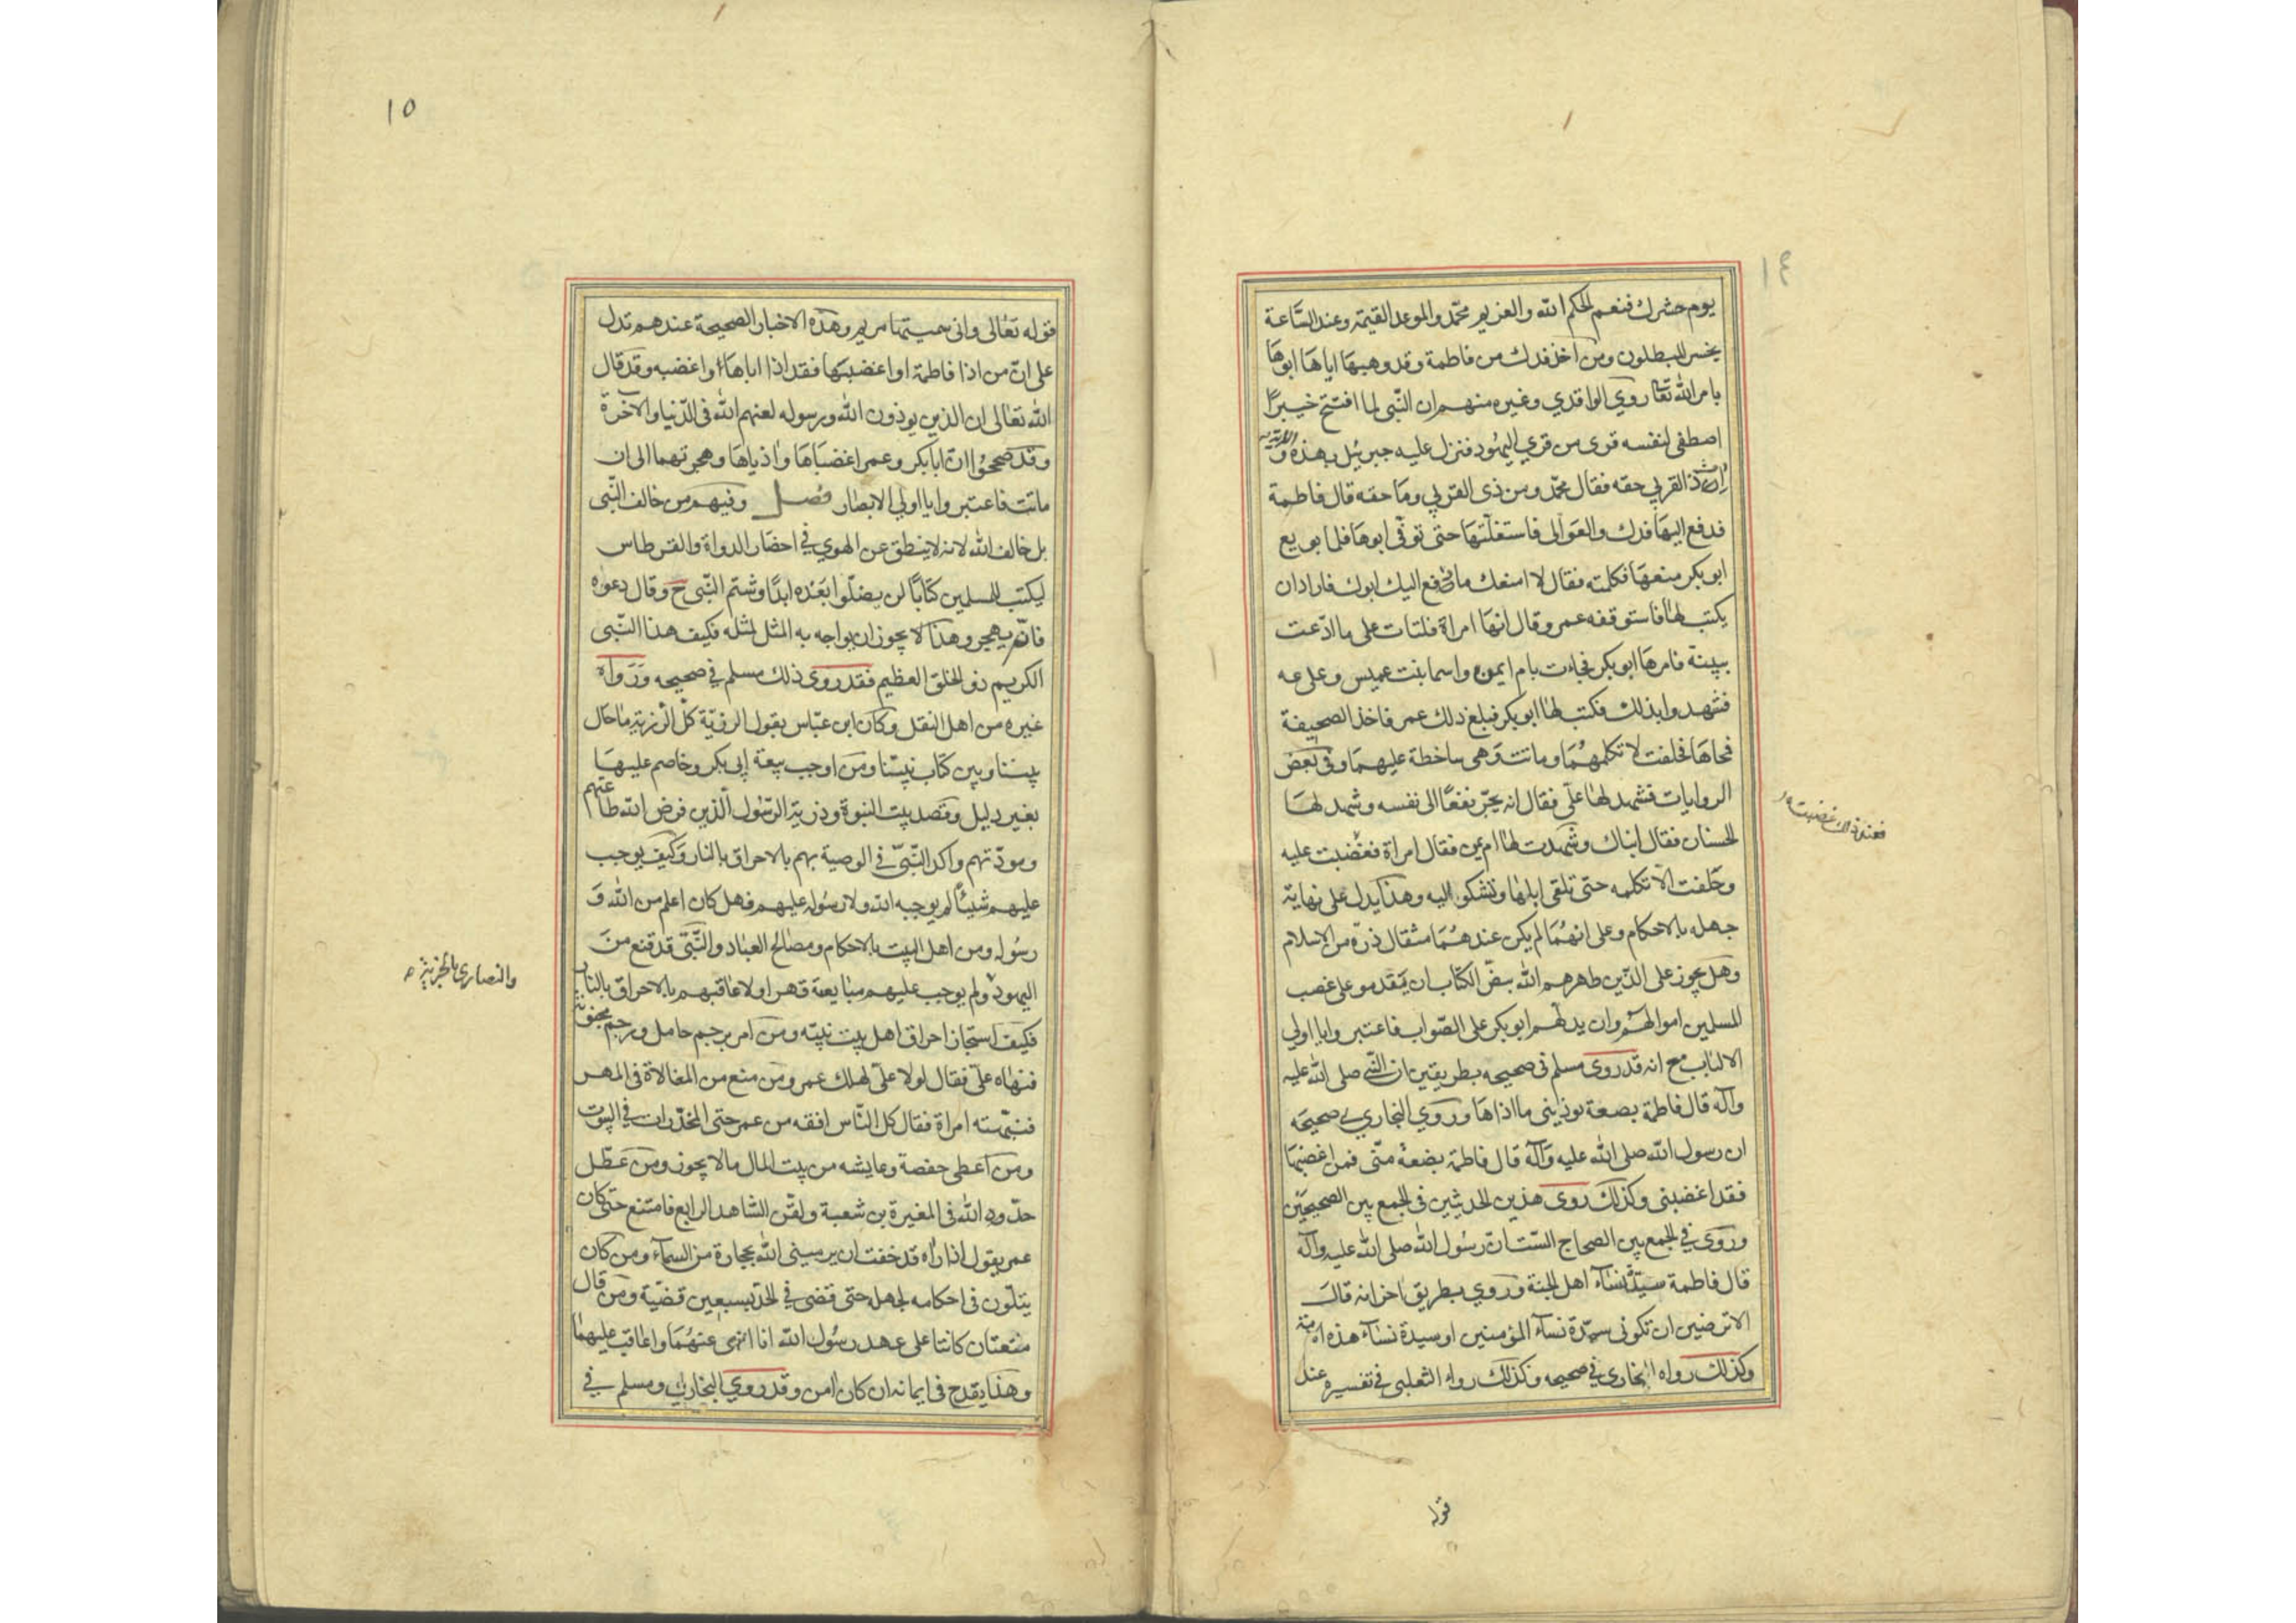 ١٤
يوم حشرك فنعم الحكم الله والغريم محمّد والموعد القيمة وعند السّاعة
يخسر المبطلون ومن أخذ فدك من فاطمة وقد وهبها اياها ابوها
بامر الله تعا روي الواقدي وغيره منهم ان النّبى لما افتتح خيبراً
اصطفى لنفسه قرى من قري اليهود فنزل عليه جبرئيل بهذه الاية و
ات ذا القربي حقه فقال محمّد ومن ذى القربي وما حقه قال فاطمة
فدفع اليها فدك والعوالى فاستغلّتها حتى توفى ابوها فلما بويع
ابو بكر منعها فكلمته فقال لا امنعك ما دفع اليك ابوك فاراد ان
يكتب لها فاستوقفه عمر وقال انها امراة فلتات على ما ادّعت
ببينة فامرها ابو بكر فجاءت بام ايمن واسما بنت عميس وعلى عه
فشهدوا بذلك فكتب لها ابو بكر فبلغ ذلك عمر فاخذ الصحيفة
فمحاها فحلفت لا تكلمهما وماتت وهى ساخطة عليهما وفى بعض
الروايات فشهد لها علّى فقال انه يجرّ نفعًا الى نفسه وشهد لها
الحسنان فقال ابناك وشهدت لها ام يمن فقال امراة فغضبت عليه
فعند ذلك غضبت
وحلفت الا تكلمه حتى تلقى اباها وتشكو اليه وهذا يدل على نهاية
جهله بالاحكام وعلى انهما لم يكن عندهما مثقال ذرّة من الاسلام
وهل يجوز على الذين طهرهم الله بنصّ الكتاب ان يقدمو على غصب
المسلمين اموالهم وان يدلهم ابو بكر على الصّواب فاعتبروا يا اولي
الالباب مع انه قد روى مسلم فى صحيحه بطريقين ان النّبى صلى الله عليه
وآله قال فاطمة بضعة يوذينى ما اذاها وروي البخاري في صحيحه
ان رسول الله صلى الله عليه وآله قال فاطمة بضعة منّى فمن اغضبها
فقد اغضبنى وكذلك روى هذين الحديثين فى الجمع بين الصحيحين
وروى في الجمع بين الصحاح الستّ ان رسول الله صلى الله عليه وآله
قال فاطمة سيّدة نساء اهل الجنة وروي بطريق اخر انه قال
الا ترضين ان تكونى سيّدة نساء المؤمنين او سيدة نساء هذه الامة
وكذلك رواه البخارى فى صحيحه وكذلك رواه الثعلبى فى تفسيره عند
قوله
١٥
قوله تعالى وانى سميتها مريم وهذه الاخبار الصحيحة عندهم تدل
على انّ من اذا فاطمة او اغضبها فقد اذا اباها او اغضبه وقد قال
الله تعالى ان الذين يوذون الله ورسوله لعنهم الله فى الدّنيا والاخرة
وقد صححوا ان ابا بكر وعمر اغضباها واذياها وهجرتهما الى ان
ماتت فاعتبروا يا اولي الابصار فصل وفيهم من خالف النّبى
بل خالف الله لانه لا ينطق عن الهوي في احضار الدواة والقرطاس
ليكتب للمسلمين كتابًا لن يضلّوا بعده ابدًا وشتم النّبى ح وقال دعوه
فانّه يهجر وهذا لا يجوز ان يواجه به المثل لمثله فكيف هذا النّبى
الكريم ذو الخلق العظيم فقد روى ذلك مسلم في صحيحه ورواه
غيره من اهل النقل وكان ابن عبّاس يقول الرزيّة كلّ الرزية ما حال
بيننا وبين كتاب نبيّنا ومن اوجب بيعة ابى بكر وخاصم عليها
بغير دليل وقصد بيت النبوة وذرية الرّسول الذين فرض الله طاعتهم
ومودّتهم واكد النّبىّ فى الوصية بهم بالاحراق بالنار وكيف يوجب
عليهم شيئًا لم يوجبه الله ولا رسوله عليهم فهل كان اعلم من الله و
رسوله ومن اهل البيت بالاحكام ومصالح العباد والنّبىّ قد قنع من
اليهود ولم يوجب عليهم مبايعة قهرا ولا عاقبهم بالاحراق بالنار
والنصارى بالجزية
فكيف استجاز احراق اهل بيت نبيّه ومن امر برجم حامل ورجم مجنونة
فنهاه علىّ فقال لولا علىّ لهلك عمر ومن منع من المغالاة فى المهر
فنبّهته امراة فقال كل النّاس افقه من عمر حتى المخدّرات في البيوت
ومن اعطى حفصة وعايشه من بيت المال ما لا يجوز ومن عطّل
حدّود الله فى المغيرة بن شعبة ولقّن الشّاهد الرابع فامتنع حتى كان
عمر يقول اذا راه قد خفت ان يرمينى الله بحجارة من السماء ومن كان
يتلّون فى احكامه لجهله حتى قضى في الحدّ بسبعين قضيّة ومن قال
متعتان كانتا على عهد رسول الله انا انهى عنهما واعاقب عليهما
وهذا يقدح فى ايمانه ان كان امن وقد روي البخارى ومسلم في